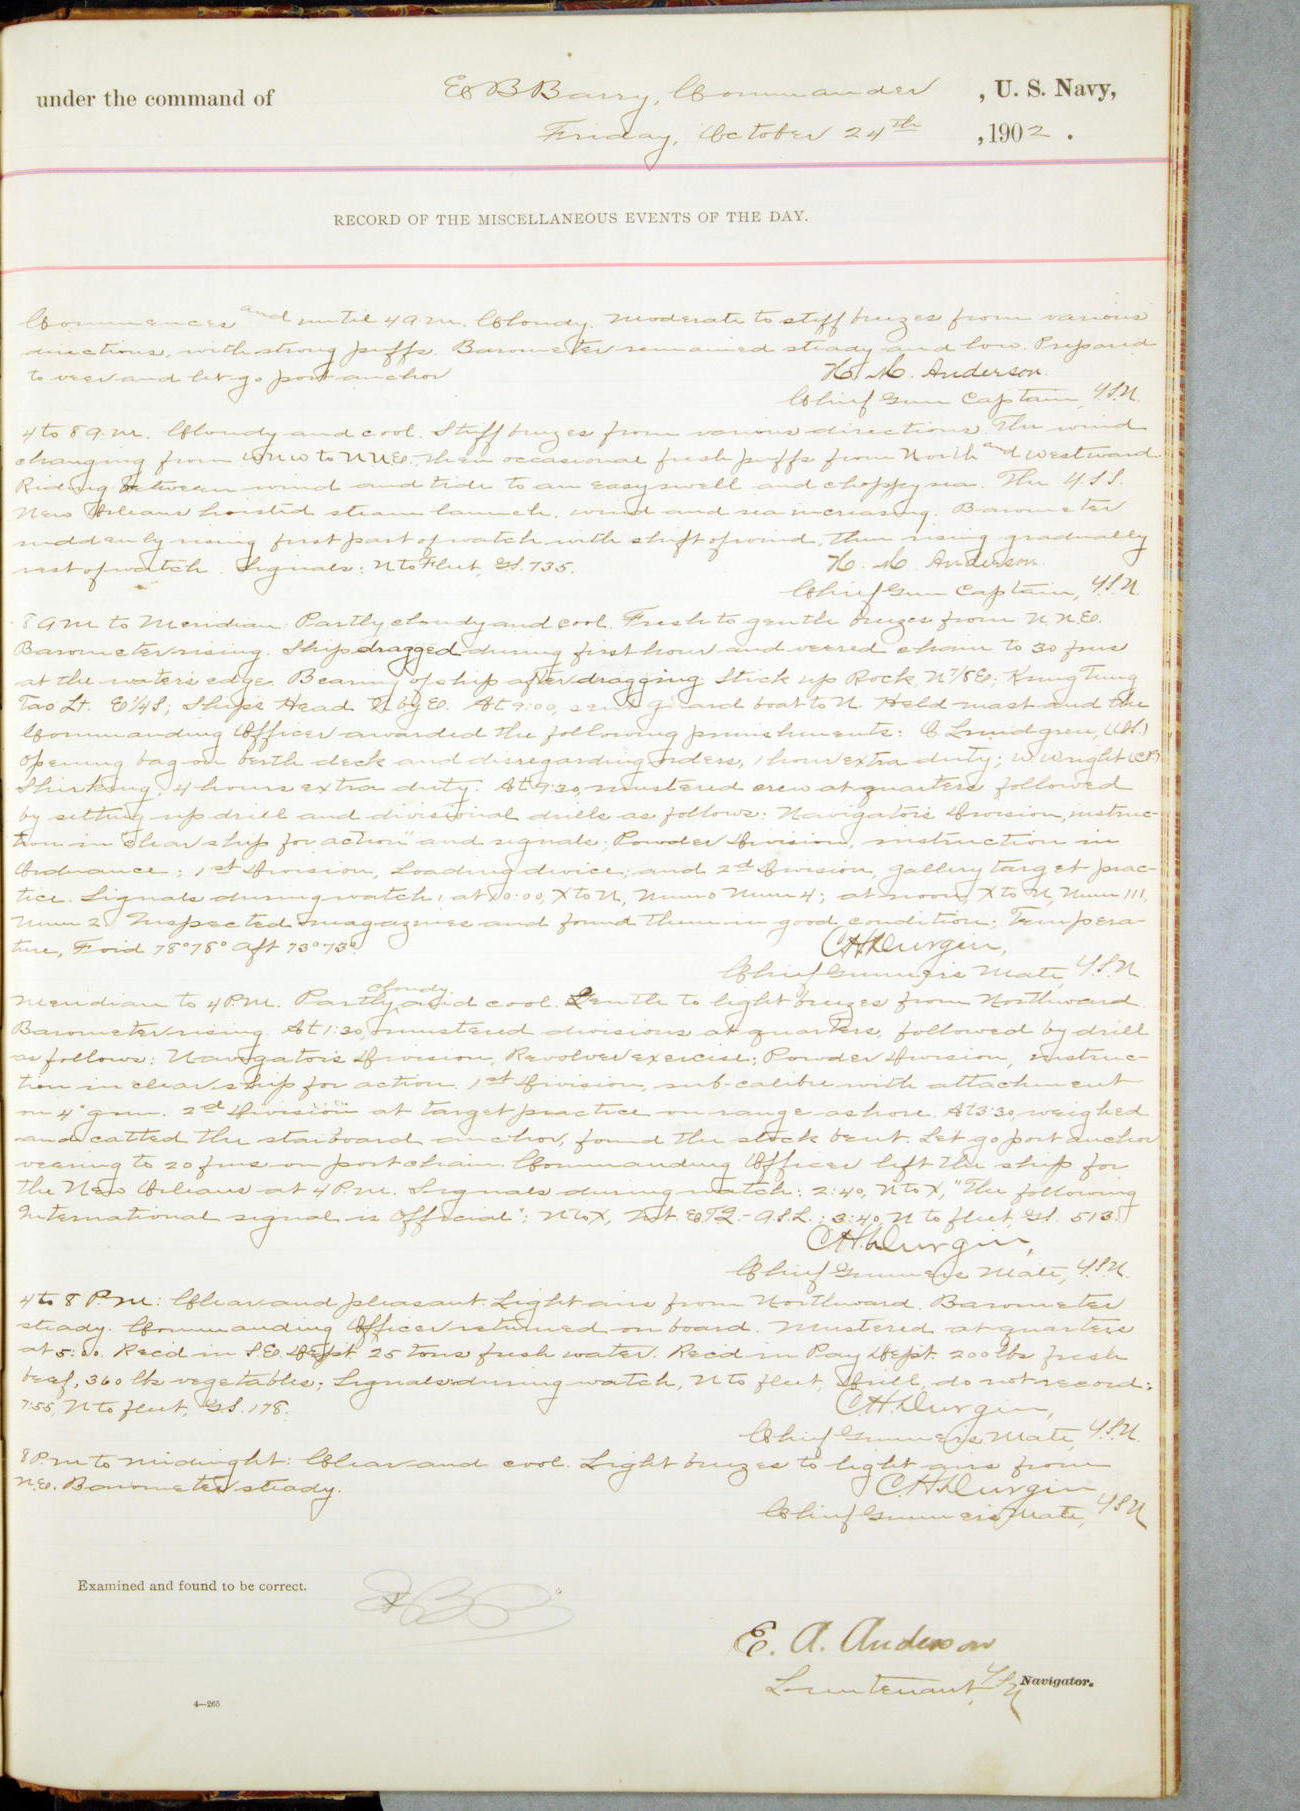 under the command of E B Barry, Commander , U. S. Navy,
Friday, October 24th , 1902 .
RECORD OF THE MISCELLANEOUS EVENTS OF THE DAY.
Commences and until 4 a.m. Cloudy. Moderate to stiff breezes from various
directions, with strong puffs. Barometer remained steady and low. Prepared
to veer and let go port anchor
H. M. Anderson.
Chief Gun Captain, U.S.N.
4 to 8 a.m. Cloudy and cool. Stiff breezes from various directions. The wind
changing from WNW to NNE. then occasional fresh puffs from North and Westward.
Riding between wind and tide to an easy swell and choppy sea. The U.S.S.
New Orleans hoisted steam launch. wind and sea increasing. Barometer
suddenly rising first part of watch with shift of wind, then rising gradually
rest of watch. Signals: N to Fleet, G.S. 735.
H. M. Anderson.
Chief Gun Captain, U.S.N.
8 a.m. to Meridian: Partly cloudy and cool. Fresh to gentle breezes from N N.E.
Barometer rising. Ship dragged during first hour and veered chain to 30 fms
at the water's edge. Bearing of ship after dragging: Stick up Rock, N 7/8 E; Kung Tung
Tao Lt. E 1/4 S; Ship's Head N by E. At 9:00, sent guard boat to N. Held mast and the
Commanding Officer awarded the following punishments: C Lundgren,
opening bag on berth deck and disregarding orders, 1 hour extra duty; W. Wright
Shirking, 4 hours extra duty. At 9:30, mustered crew at quarters followed
by setting up drill and divisional drills as follows: Navigator's Division, instruc-
tion in "clear ship for action" and signals; Powder Division, instruction in
Ordnance; 1st Division, Loading device; and 2d Division, gallery target prac-
tice. Signals during watch: at 10:00, X to N, Numo Num 4; at noon, X to N, Num 111,
Num 2. Inspected magazines and found them in good condition; Tempera-
ture, For'd 78° 78° Aft 73° 73°.
C.H. Durgin,
Chief Gunner's Mate, U.S.N.
Meridian to 4 P.M. Partly cloudy and cool. Gentle to light breezes from Northward.
Barometer rising. At 1:30, mustered divisions at quarters, followed by drill
as follows: Navigator's Division, Revolver exercise; Powder Division, instruc-
tion in clear ship for action. 1st Division, sub-calibre with attachment
on 4" gun. 2d Division at target practice on range ashore. At 3:30, weighed
and catted the starboard anchor, found the stock bent. Let go port anchor
veering to 20 fms on port chain. Commanding Officer left the ship for
the New Orleans at 4 P.M. Signals during watch: 2:40, N to X, "The following
International signal is Official"; N to X, Int. ; 3:40, N to fleet, G.S. 513.
C.H. Durgin,
Chief Gunner's Mate, U.S.N.
4 to 8 P.M.: Clear and pleasant. Light airs from Northward. Barometer
steady. Commanding Officer returned on board. Mustered at quarters
at 5:00. Rec'd in S.E. Dept. 25 tons fresh water. Rec'd in Pay Dept. 200 lbs fresh
beef, 360 lbs vegetables; Signals during watch, N to fleet, Drill, do not record;
7:55, N to fleet, G.S. 178.
C.H. Durgin,
Chief Gunner's Mate, U.S.N.
8 P.M. to midnight: Clear and cool. Light breezes to light airs from
N.E. Barometer steady.
C.H. Durgin
Chief Gunner's Mate, U.S.N
Examined and found to be correct. EBB
E. A. Anderson
Lieutenant, USN Navigator.
4—265